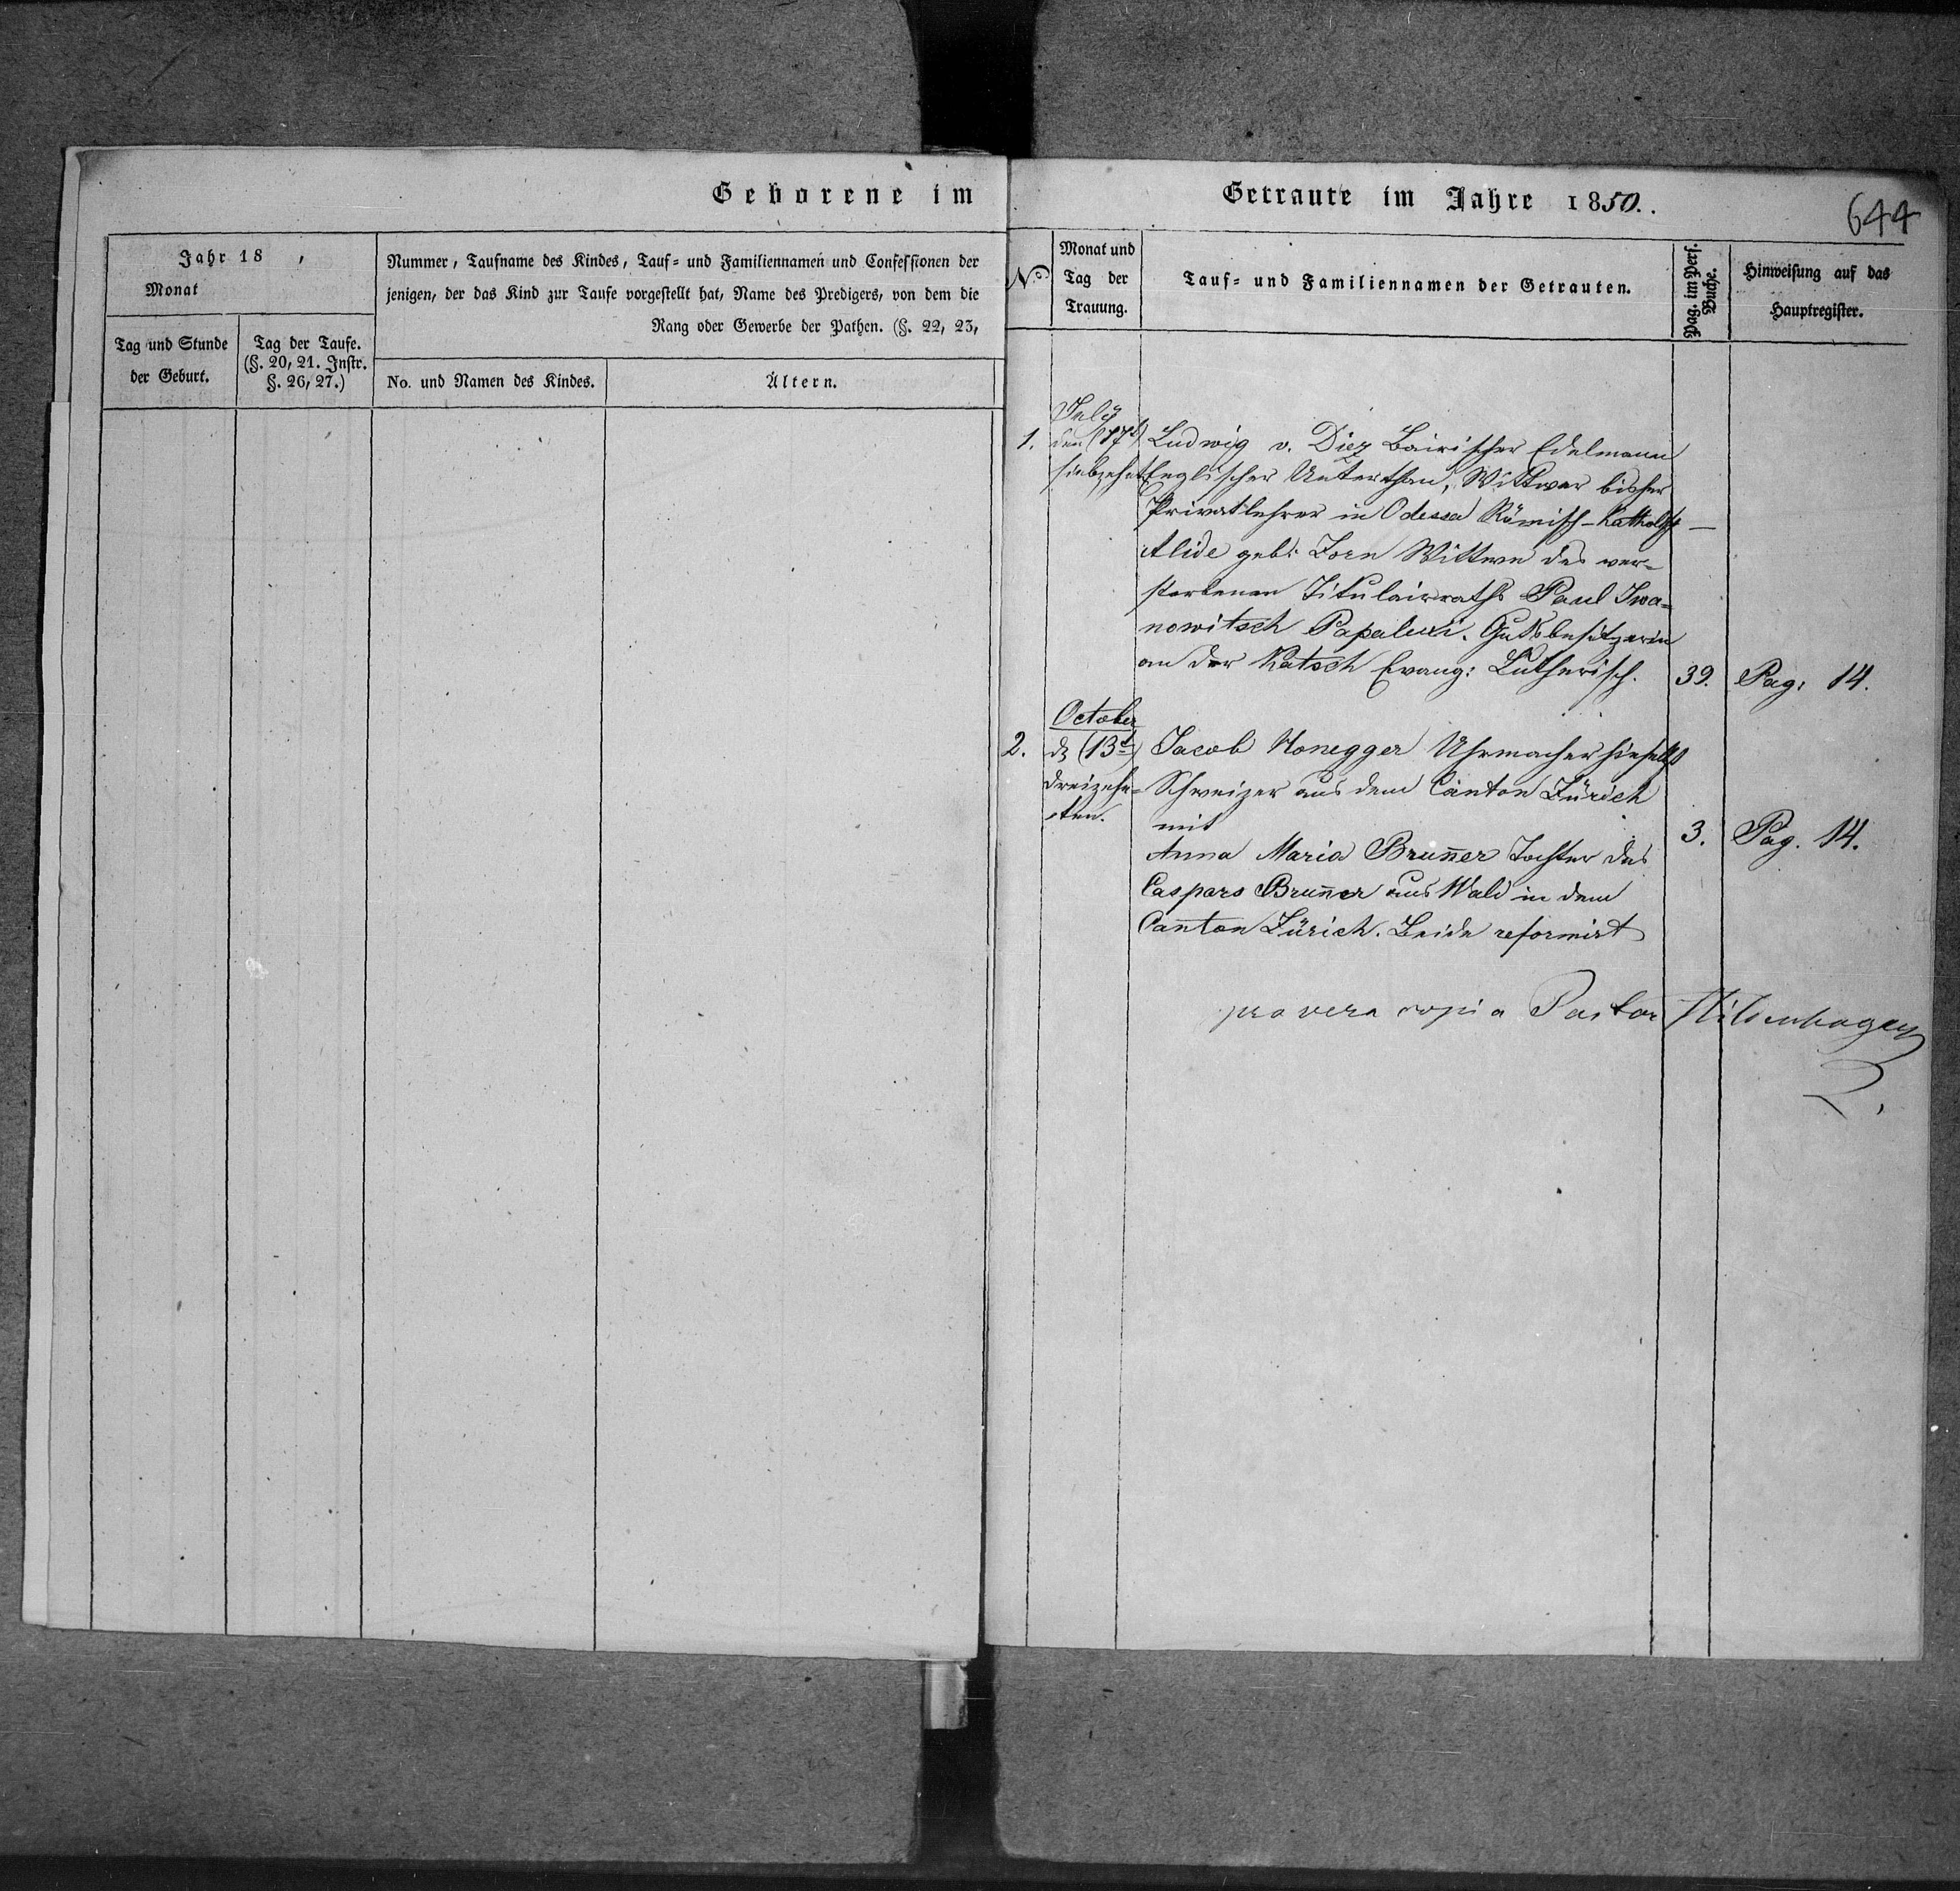 Geborene im
Jahr 18 ,
Monat
Nummer, Taufname des Kindes, Tauf- und Familiennamen und Confessionen der
jenigen, der das Kind zur Taufe vorgestellt hat, Name des Predigers, von dem die
Rang oder Gewerbe der Pathen. (§. 22, 23,
Tag und Stunde
der Geburt.
Tag der Taufe.
(§. 20, 21. Instr.
§. 26, 27.)
No. und Namen des Kindes.
Ältern.
Getraute im Jahre 1850.
644
No.
Monat und
Tag der
Trauung.
Tauf- und Familiennamen der Getrauten.
Pag. im Pers.
Buche.
Hinweisung auf das
Hauptregister.
July
1. den (17t) Ludwig v. Diez Bairischer Edelmann
siebzehnt Englischer Unterthan, Wittwer bisher
Privatlehrer in Odessa Römisch-Katholisch —
Alide geb: Zorn Wittwe des ver-
storbenen Titulairraths Paul Iwa-
nowitsch Papalexi. Gutsbesitzerin
an der Katsch Evang: Lutherisch. 39. Pag: 14.
October
2. d (13t) Jacob Honegger Uhrmacher hieselbst
dreizehn- Schweizer aus dem Canton Zürich
ten. mit
Anna Maria Bruner Tochter des 3. Pag. 14.
Caspars Bruner aus Wald in dem
Canton Zürich. Beide reformirt
pro vera copia Pastor